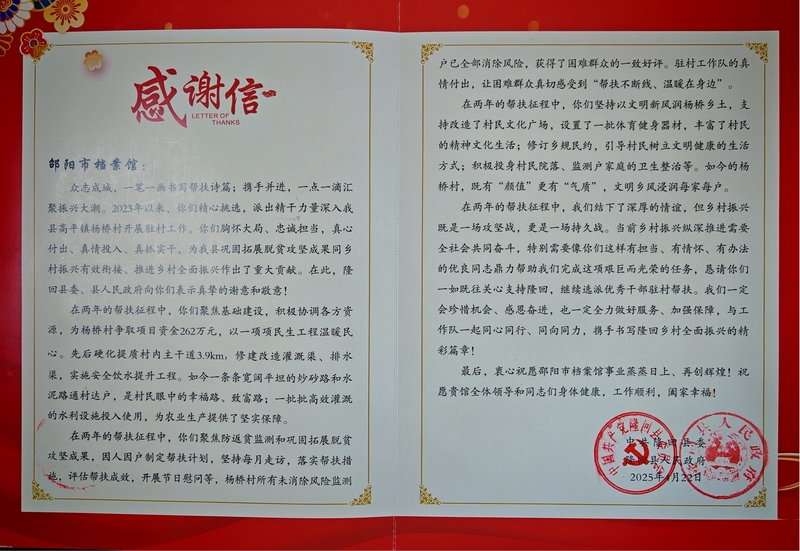 感谢信
LETTER OF
THANKS
邵阳市档案馆：
众志成城，一笔一画书写帮扶诗篇；携手并进，一点一滴汇
聚振兴大潮。2023年以来，你们精心挑选，派出精干力量深入我
县高平镇杨桥村开展驻村工作。你们胸怀大局、忠诚担当，真心
付出、真情投入、真抓实干，为我县巩固拓展脱贫攻坚成果同乡
村振兴有效衔接、推进乡村全面振兴作出了重大贡献。在此，隆
回县委、县人民政府向你们表示真挚的谢意和敬意！
在两年的帮扶征程中，你们聚焦基础建设，积极协调各方资
源，为杨桥村争取项目资金262万元，以一项项民生工程温暖民
心。先后硬化提质村内主干道3.9km，修建改造灌溉渠、排水
渠，实施安全饮水提升工程。如今一条条宽阔平坦的炒砂路和水
泥路通村达户，是村民眼中的幸福路、致富路；一批批高效灌溉
的水利设施投入使用，为农业生产提供了坚实保障。
在两年的帮扶征程中，你们聚焦防返贫监测和巩固拓展脱贫
攻坚成果，因人因户制定帮扶计划，坚持每月走访，落实帮扶措
施，评估帮扶成效，开展节日慰问等，杨桥村所有未消除风险监测
户已全部消除风险，获得了困难群众的一致好评。驻村工作队的真
情付出，让困难群众真切感受到“帮扶不断线、温暖在身边”。
在两年的帮扶征程中，你们坚持以文明新风润杨桥乡土，支
持改造了村民文化广场，设置了一批体育健身器材，丰富了村民
的精神文化生活；修订乡规民约，引导村民树立文明健康的生活
方式；积极投身村民院落、监测户家庭的卫生整治等。如今的杨
桥村，既有“颜值”更有“气质”，文明乡风浸润每家每户。
在两年的帮扶征程中，我们结下了深厚的情谊，但乡村振兴
既是一场攻坚战，更是一场持久战。当前乡村振兴纵深推进需要
全社会共同奋斗，特别需要像你们这样有担当、有情怀、有办法
的优良同志鼎力帮助我们完成这项艰巨而光荣的任务，恳请你们
一如既往关心支持隆回，继续选派优秀干部驻村帮扶。我们一定
会珍惜机会、感恩奋进，也一定全力做好服务、加强保障，与工
作队一起同心同行、同向同力，携手书写隆回乡村全面振兴的精
彩篇章！
最后，衷心祝愿邵阳市档案馆事业蒸蒸日上、再创辉煌！祝
愿贵馆全体领导和同志们身体健康，工作顺利，阖家幸福！
中共隆回县委
隆回县人民政府
2025年4月22日